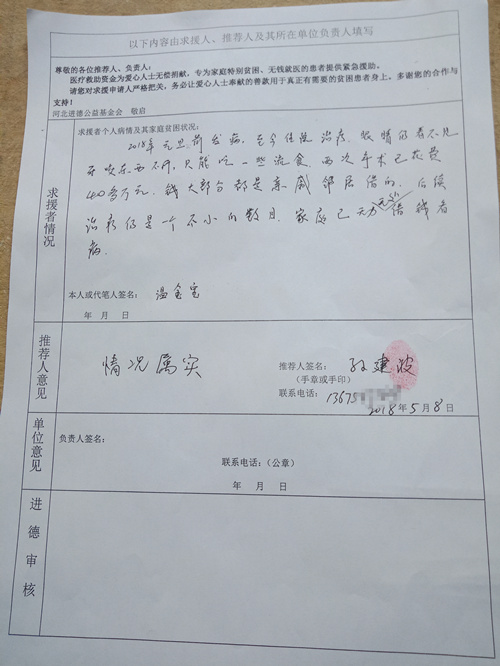 以下内容由求援人、推荐人及其所在单位负责人填写
尊敬的各位推荐人、负责人:
医疗救助资金为爱心人士无偿捐献，专为家庭特别贫困、无钱就医的患者提供紧急援助。
请您对求援申请人严格把关，务必让爱心人士奉献的善款用于真正有需要的贫困患者身上。多谢您的合作与
支持!
河北进德公益基金会 敬启
求援者情况
求援者个人病情及其家庭贫困状况:
2018年元旦前发病，至今住院治疗，眼睛仍看不见
东西不, 只能吃一些流食，两次手术已花费
40多万元，钱大部分都是亲戚邻居借的，后续
治疗仍是一个不小的数目，家庭已无力借钱看
病。
本人或代笔人签名: 温金宝
年 月 日
推荐人意见
情况属实
推荐人签名: 孙建波
(手章或手印)
联系电话: 13675
2018年5月8日
单位意见
负责人签名:
联系电话:(公章)
年 月 日
进德审核